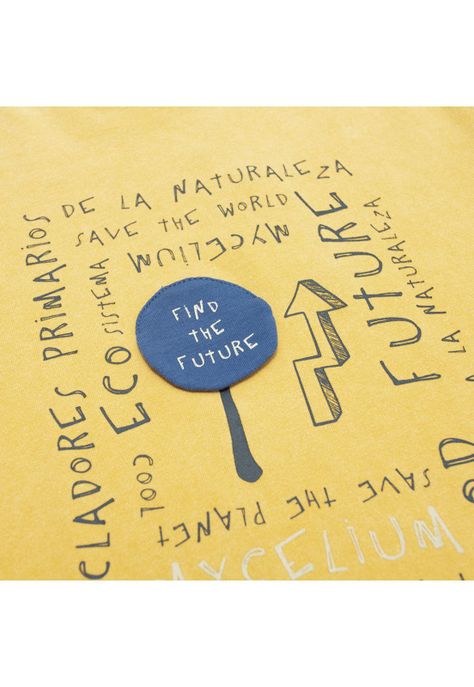 DE LA NATURALEZA
SAVE THE WORLD
MYCELIUM
CLADORES PRIMARIOS
ECO SISTEMA
COOL
FIND
THE
FUTURE
FUTURE
LA NATURALEZA
SAVE THE PLANET
MYCELIUM